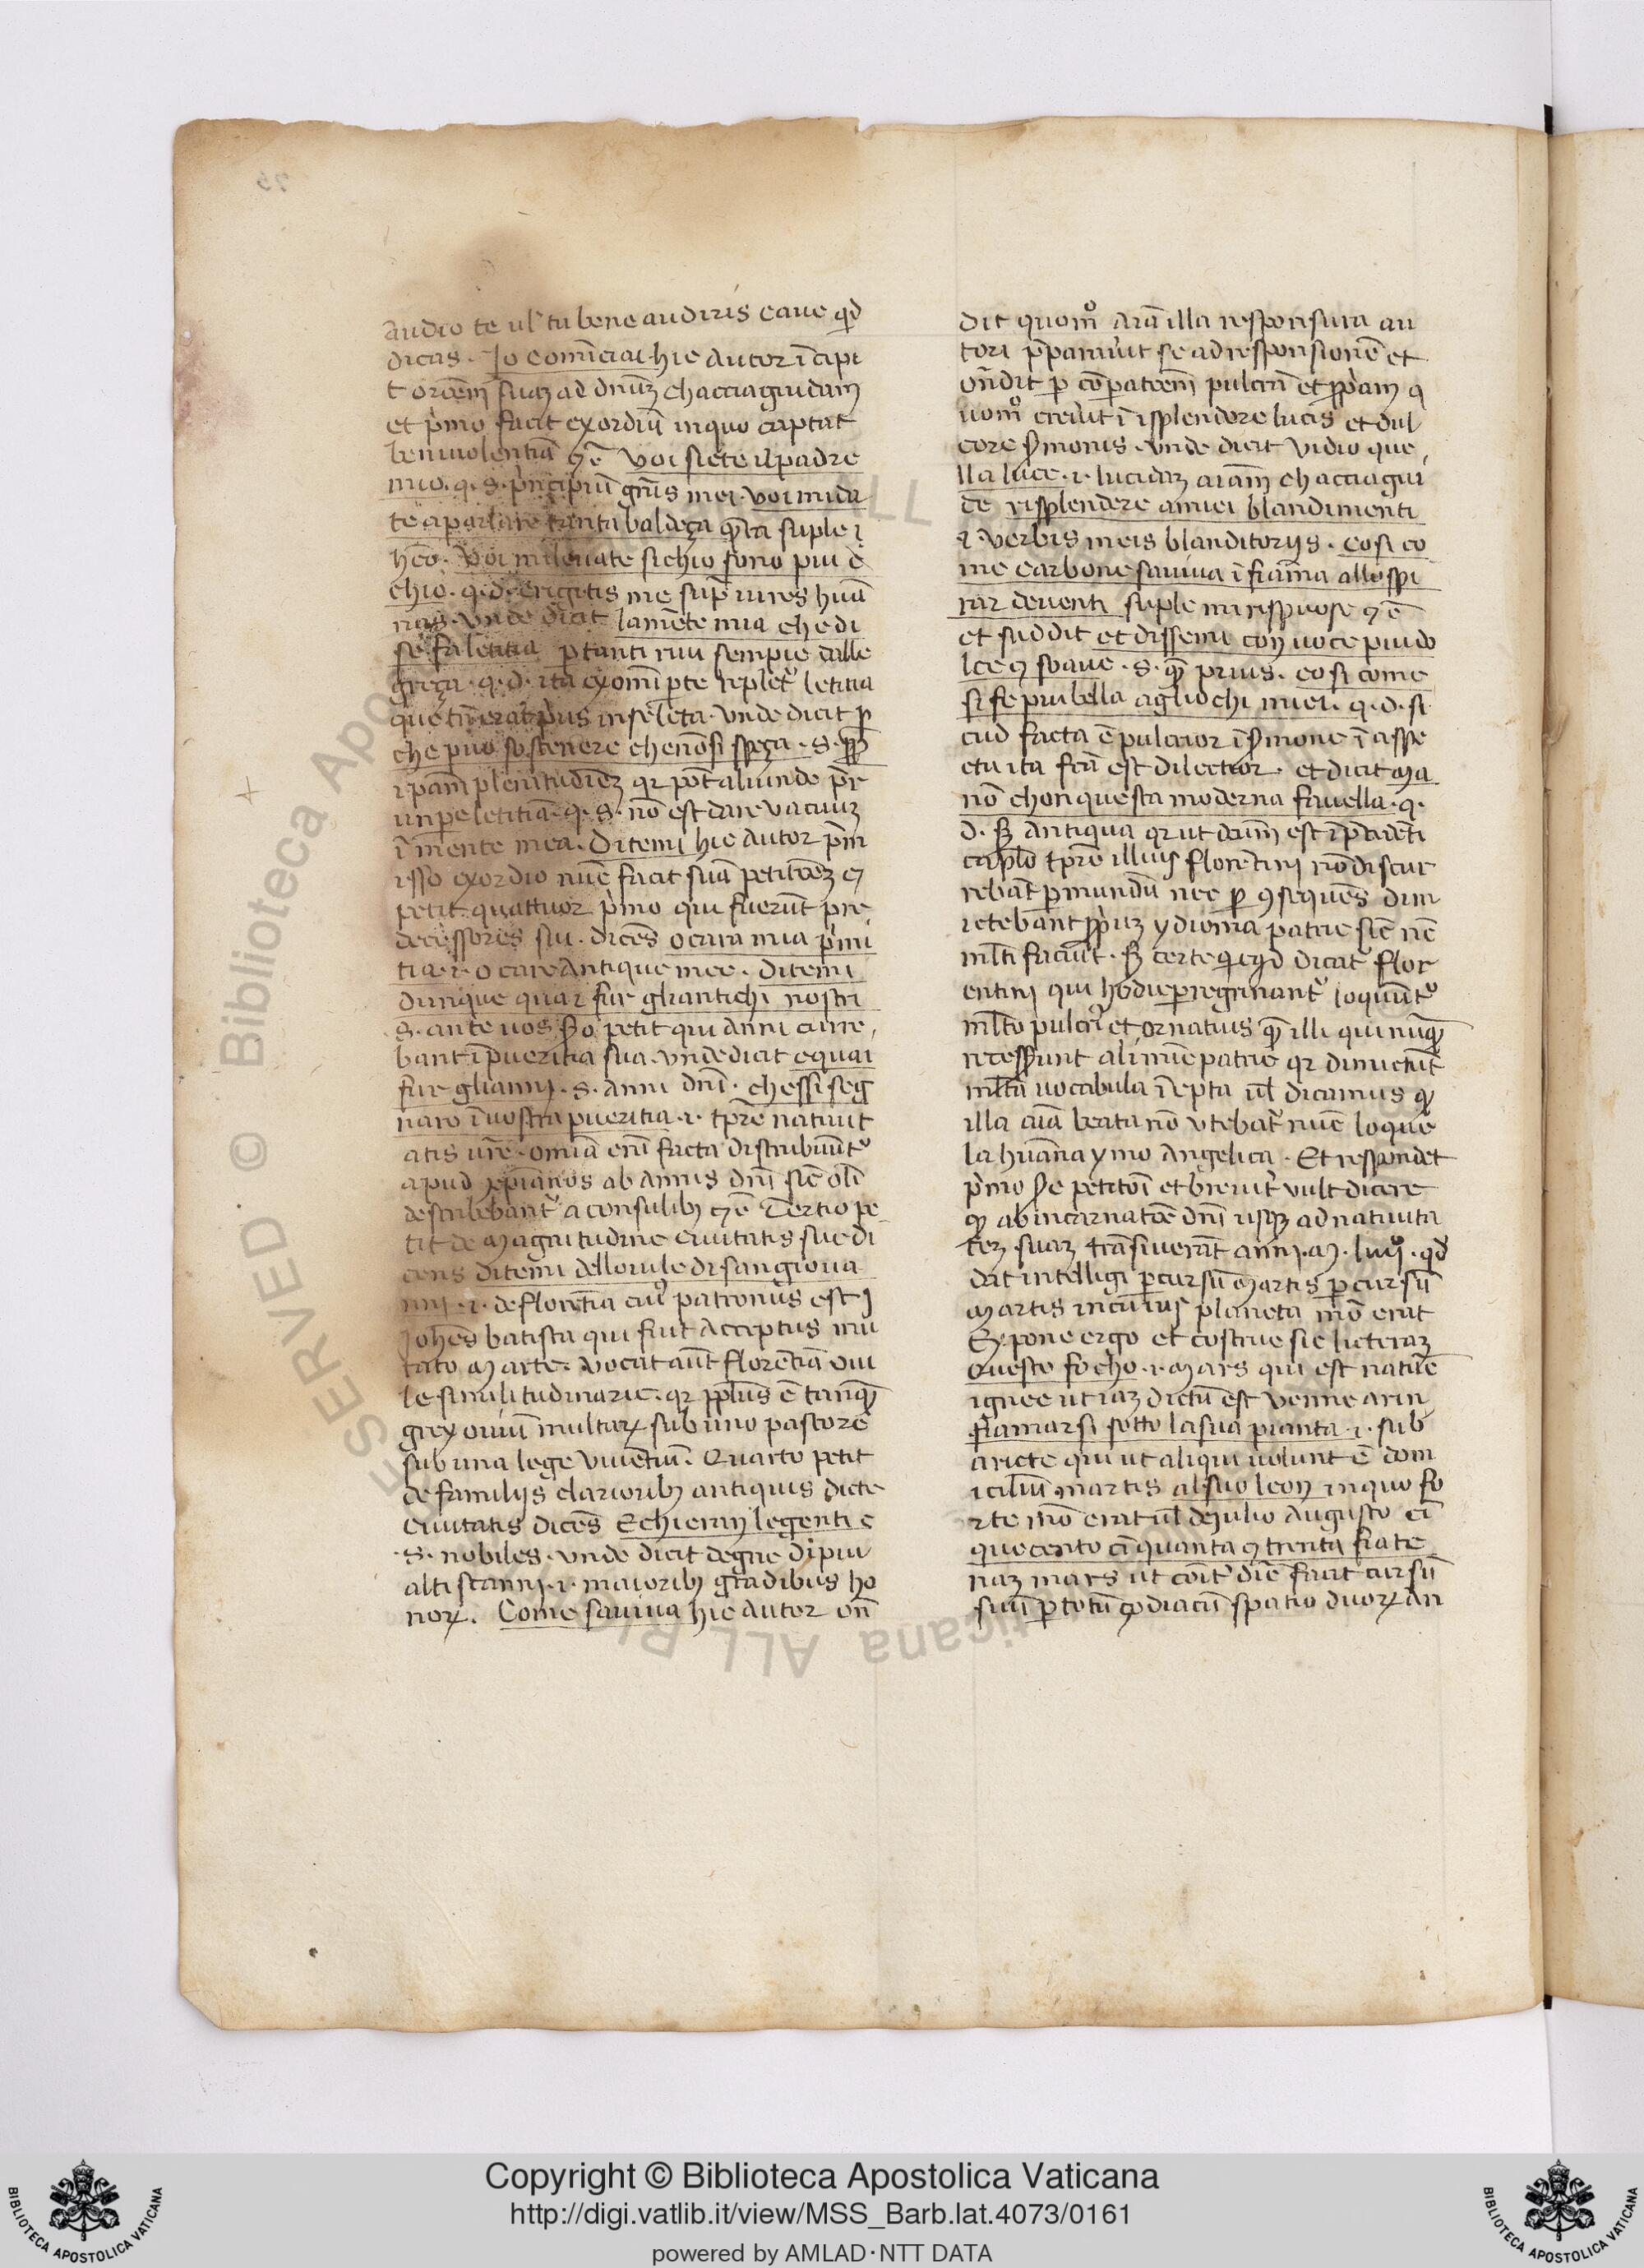 audio te ul' tu bene audiris caue qd
dicas. Io cominciai hic autor īcipi
t orōem suaz ad dnūz chacciaguidam
et p̍mo facit exordiū in quo captat
beniuolentiā ꝛc̄ voi siete il padre
mio. q. s. p̍ncipiū gn̄is mei. voi mi da
te a parlare tanta baldeça qͣta suple i
heō. Voi mi leuate si chio sono piu ch
chio. q. d. erigitis me sup̄ uires huā
nas. Vnde dicit la mēte mia che di
se fa letitia p tanti riui sempie dalle
greça. q. d. ita ex omī pte repletr̄ letitia
que tn̄ erat p̍us in se leta. vnde dicit p
che puo sostenere che nō si speça. s. pp
ipam plenitudīez qr pōt aliunde
letitia. q. s. nō est dare vacuuz
ī mente mea. Ditemi hic autor p̄m
isso exordio nūc facit suā petitōez ꝛ
petit quattuor p̍mo qui fuerūt pre
decessores sui. dicēs o cara mia p̍mi
tia. i. o care antique mee. ditemi
dunque quai fur gli antichi nostri
s. ante uos. Sͦo petit qui anni curre
bant ī pueritia sua. vnde dicit e quai
fur gli annj. s. anni dn̄i. che ssi seg
naro ī uostra pueritia. i. tp̄re natiuit
atis ur̄e. omīa enī facta distribuūtᷣ
apud xp̄ianos ab annis dn̄i sic̄ olī
describebant̄ a consulibꝫ ꝛc̄ Tertio pe
tit de magnitudine ciuitatis sue di
cens ditemi dell ouile di san gioua
nnj. i. de florētia cuiꝰ patronus est J
Johēs batista qui fuit acceptus mu
tato marte. vocat aūt florētiā oui
le similitudinarie. qr pplūs ē tanqͣ
grex ouiū multaꝝ sub uno pastore
sub una lege viuētiū. Quarto petit
de familijs clarioribꝫ antiquis dicte
ciuitatis dicēs E chi eran le genti e
s. nobiles. vnde dicit degne di piu
alti scannj. i. maioribꝫ gradibus ho
noꝝ. Come sauiua hic autor on̄
dit quomͦ aīa illa responsura au
tori p̄parauit se ad responsionē et
on̄dit p cōpatōem pulcrā et pp̍am q
uomͦ creuit ī isplendore lucis et dul
core s̄monis. vnde dicit vidio que
lla luce. i. lucidaz aīam chacciagui
de risplendere a miei blandimenti
i. verbis meis blanditorijs. cosi co
me carbone sauiua ī fiāma allo spi
rar deuenti suple mi rispuose ꝛc̄
et suddit et disse mi con uoce piu do
lce ꝛ soaue. s. qͣ prius. cosi come
si fe piu bella agli ochi miei. q. d. si
cud facta ē pulcrior ī s̄mone ī aspe
ctu ita fcā est dilectior. et dicit ma
nō chon questa moderna fauella. q.
d. sꝫ antiqua qr ut dcūm est ī pcedēti
cap̄lo tp̄re illius florētini nō discur
rebāt p mundū nec p 9sequēs dim
ictebant pp̍uz ydioma patrie sic̄ nc̄
ml̄ti faciūt. sꝫ certe qcqd dicāt flor
entinj qui hodie peregrinantᷣ loquūtᷣ
ml̄to pulcrꝰ et ornatius qͣ illi qui nūqͣ
recesserunt a limine patrie qr dimictūt
ml̄ta uocabula īepta ul̄ dicamus qꝫ
illa aīa beata nō utebatᷣ nūc loque
la huāna ymo angelica. Et respondet
p̍mo sͦe petitōi et breuitᷣ vult dicere
qꝫ ab incarnatōe dn̄i usqꝫ ad natiuita
tez suaz trāsiuerāt annj. M. lvjͦ. qd
dat intelligi p cursū martis p cursū
martis in cuiꝰ planeta mō erat
Expone ergo et cōstrue sic licteraz
questo focho. i. mars qui est nature
ignee ut iaz dictū est venne arin
fiamarsi sotto la sua pianta. i. sub
ariete qui ut aliqui uolunt ē dom
iciliū martis al suo leon in quo fo
rte mō erat ul̄ de julio augusto cī
que cento cīquanta ꝛ trenta fiate
naz mars ut cōitᷣ dicr̄ facit cursū
suū p totū çodiacū spatio duoꝝ an
Copyright © Biblioteca Apostolica Vaticana
http://digi.vatlib.it/view/MSS_Barb.lat.4073/0161
powered by AMLAD·NTT DATA